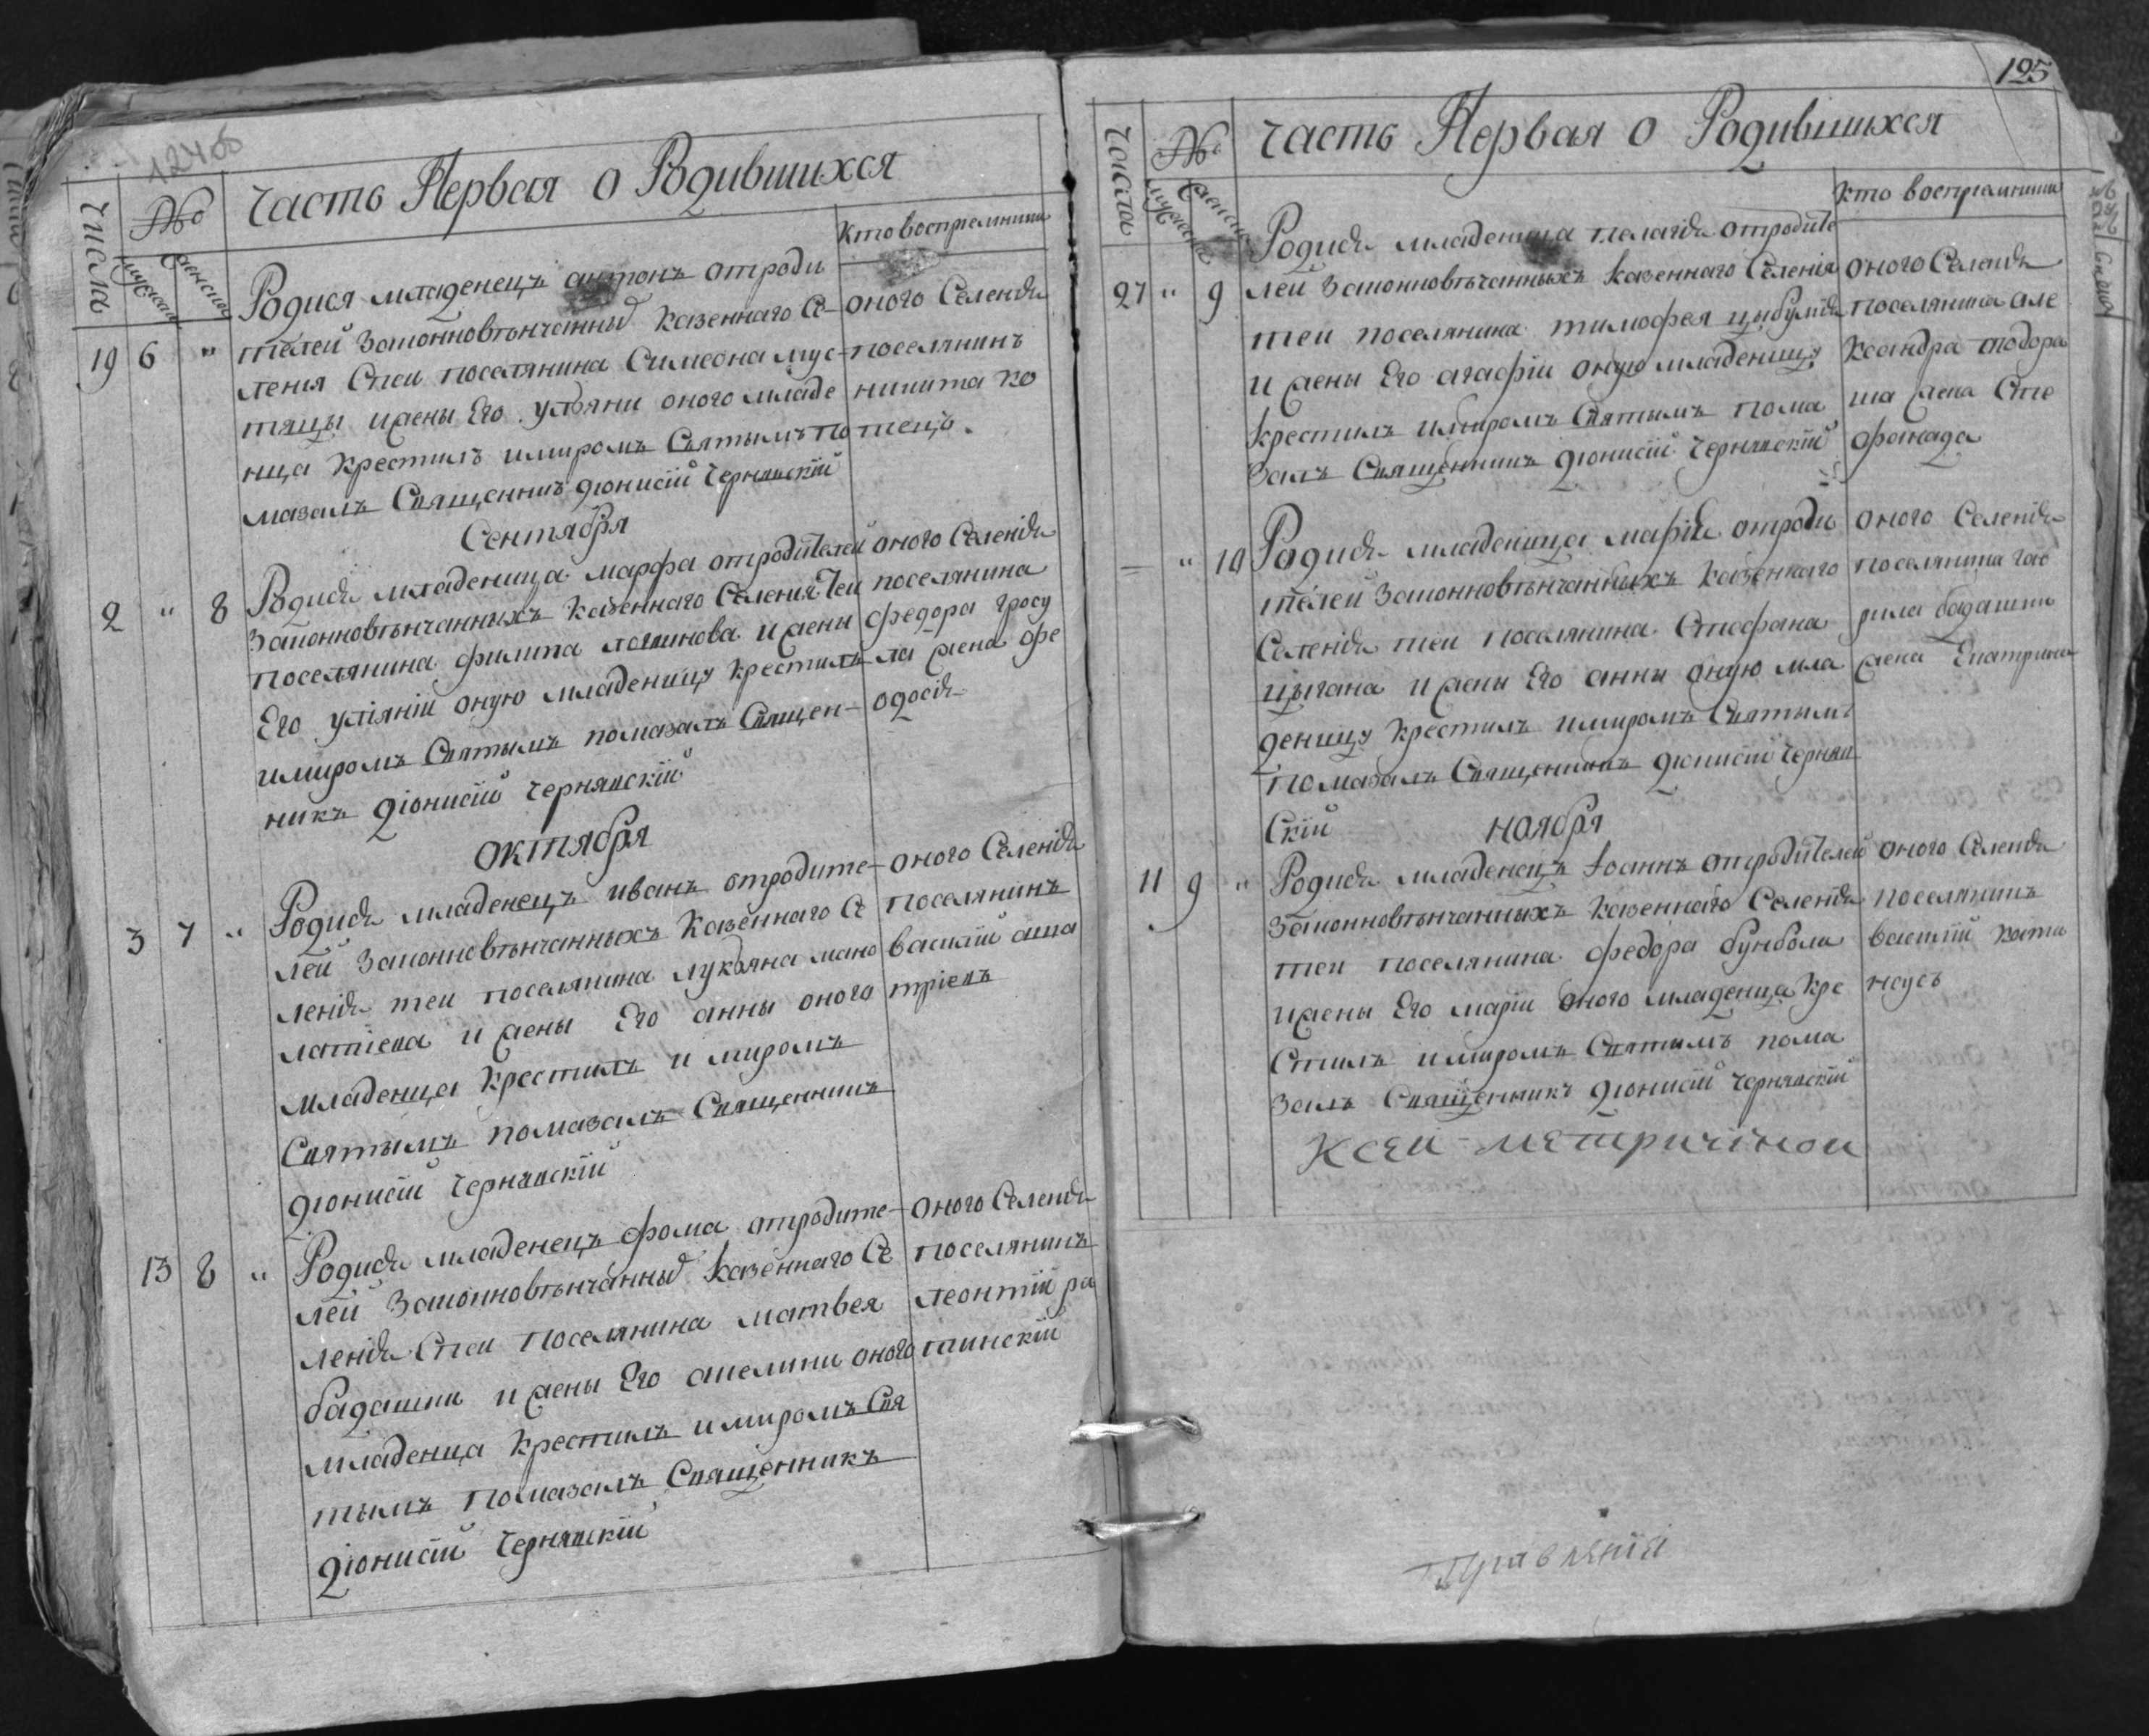 124об
Часть Первая о Родившихся
Числа
№
мужска
женска
Кто восприемники
Родися младенецъ антонъ отроди
19 6 "
телей законновѣнчанныхъ казеннаго Се-
ления Степ поселянина Симеона мус-
тяцы и жены Его ульяни оного младе
нца крестилъ и миромъ Святымъ по
мазалъ Священникъ дионисій Чернявскій
оного Селенія
поселянинъ
никита ко
тецъ.
Сентября
2 " 8
Родися младеница марфа отродителей
законновѣнчанныхъ казеннаго Селения теи
поселянина филипа логинова и жены
Его уліяніи оную младеницу крестилъ
и миромъ Святымъ помазалъ Священ-
никъ діонисій Чернявскій
оного Селенія
поселянина
федора гросу
ла жена фе
одосія
октября
3 7 "
Родися младенецъ иванъ отродите-
лей законновѣнчанныхъ казеннаго Се
ленія теи поселянина лукьяна мано
латіева и жены Его анны оного
младенца крестилъ и миромъ
Святымъ помазалъ Священникъ
дионисій Чернявскій
оного Селенія
поселянинъ
василій
тріевъ
13 8 "
Родися младенецъ фома отродите-
лей законновѣнчанныхъ казеннаго Се
ленія Степ поселянина матвея
бадашки и жены Его акелини оного
младенца крестилъ и миромъ Свя
тымъ помазалъ Священникъ
діонисій Чернявскій
оного Селенія
поселянинъ
леонтій ра
гинскій
125
Часть Первая о Родившихся
Числа
№
мужска
женска
Кто восприемники
Родися младеница пелагія отродите
27 " 9
лей законновѣнчанныхъ казеннаго Селенія
теи поселянина тимофея цыбулки
и жены Его агафіи оную младеницу
крестилъ и миромъ Святымъ пома
залъ Священникъ дионисій Чернявскій
оного Селенія
поселянина але
ксандра тодора
ша жена Сте
фанида
= " 10
Родися младеница марія отроди
телей законновѣнчанныхъ казеннаго
Селенія теи поселянина Стефана
цыгана и жены Его анны оную мла
деницу крестилъ и миромъ Святымъ
помазалъ Священникъ дионисій Черняв
скій
оного Селенія
поселянина гав
рила бадашки
жена Екатрина
ноября
11 9 "
Родися младенецъ Іоаннъ отродителей
законновѣнчанныхъ казеннаго Селенія
теи поселянина федора бунбола
и жены Его маріи оного младенца кре
стилъ и миромъ Святымъ пома
залъ Священникъ дионисій Чернявскій
оного Селенія
поселянинъ
василій кати
неусъ
Ксеи метричіной
Правлянія